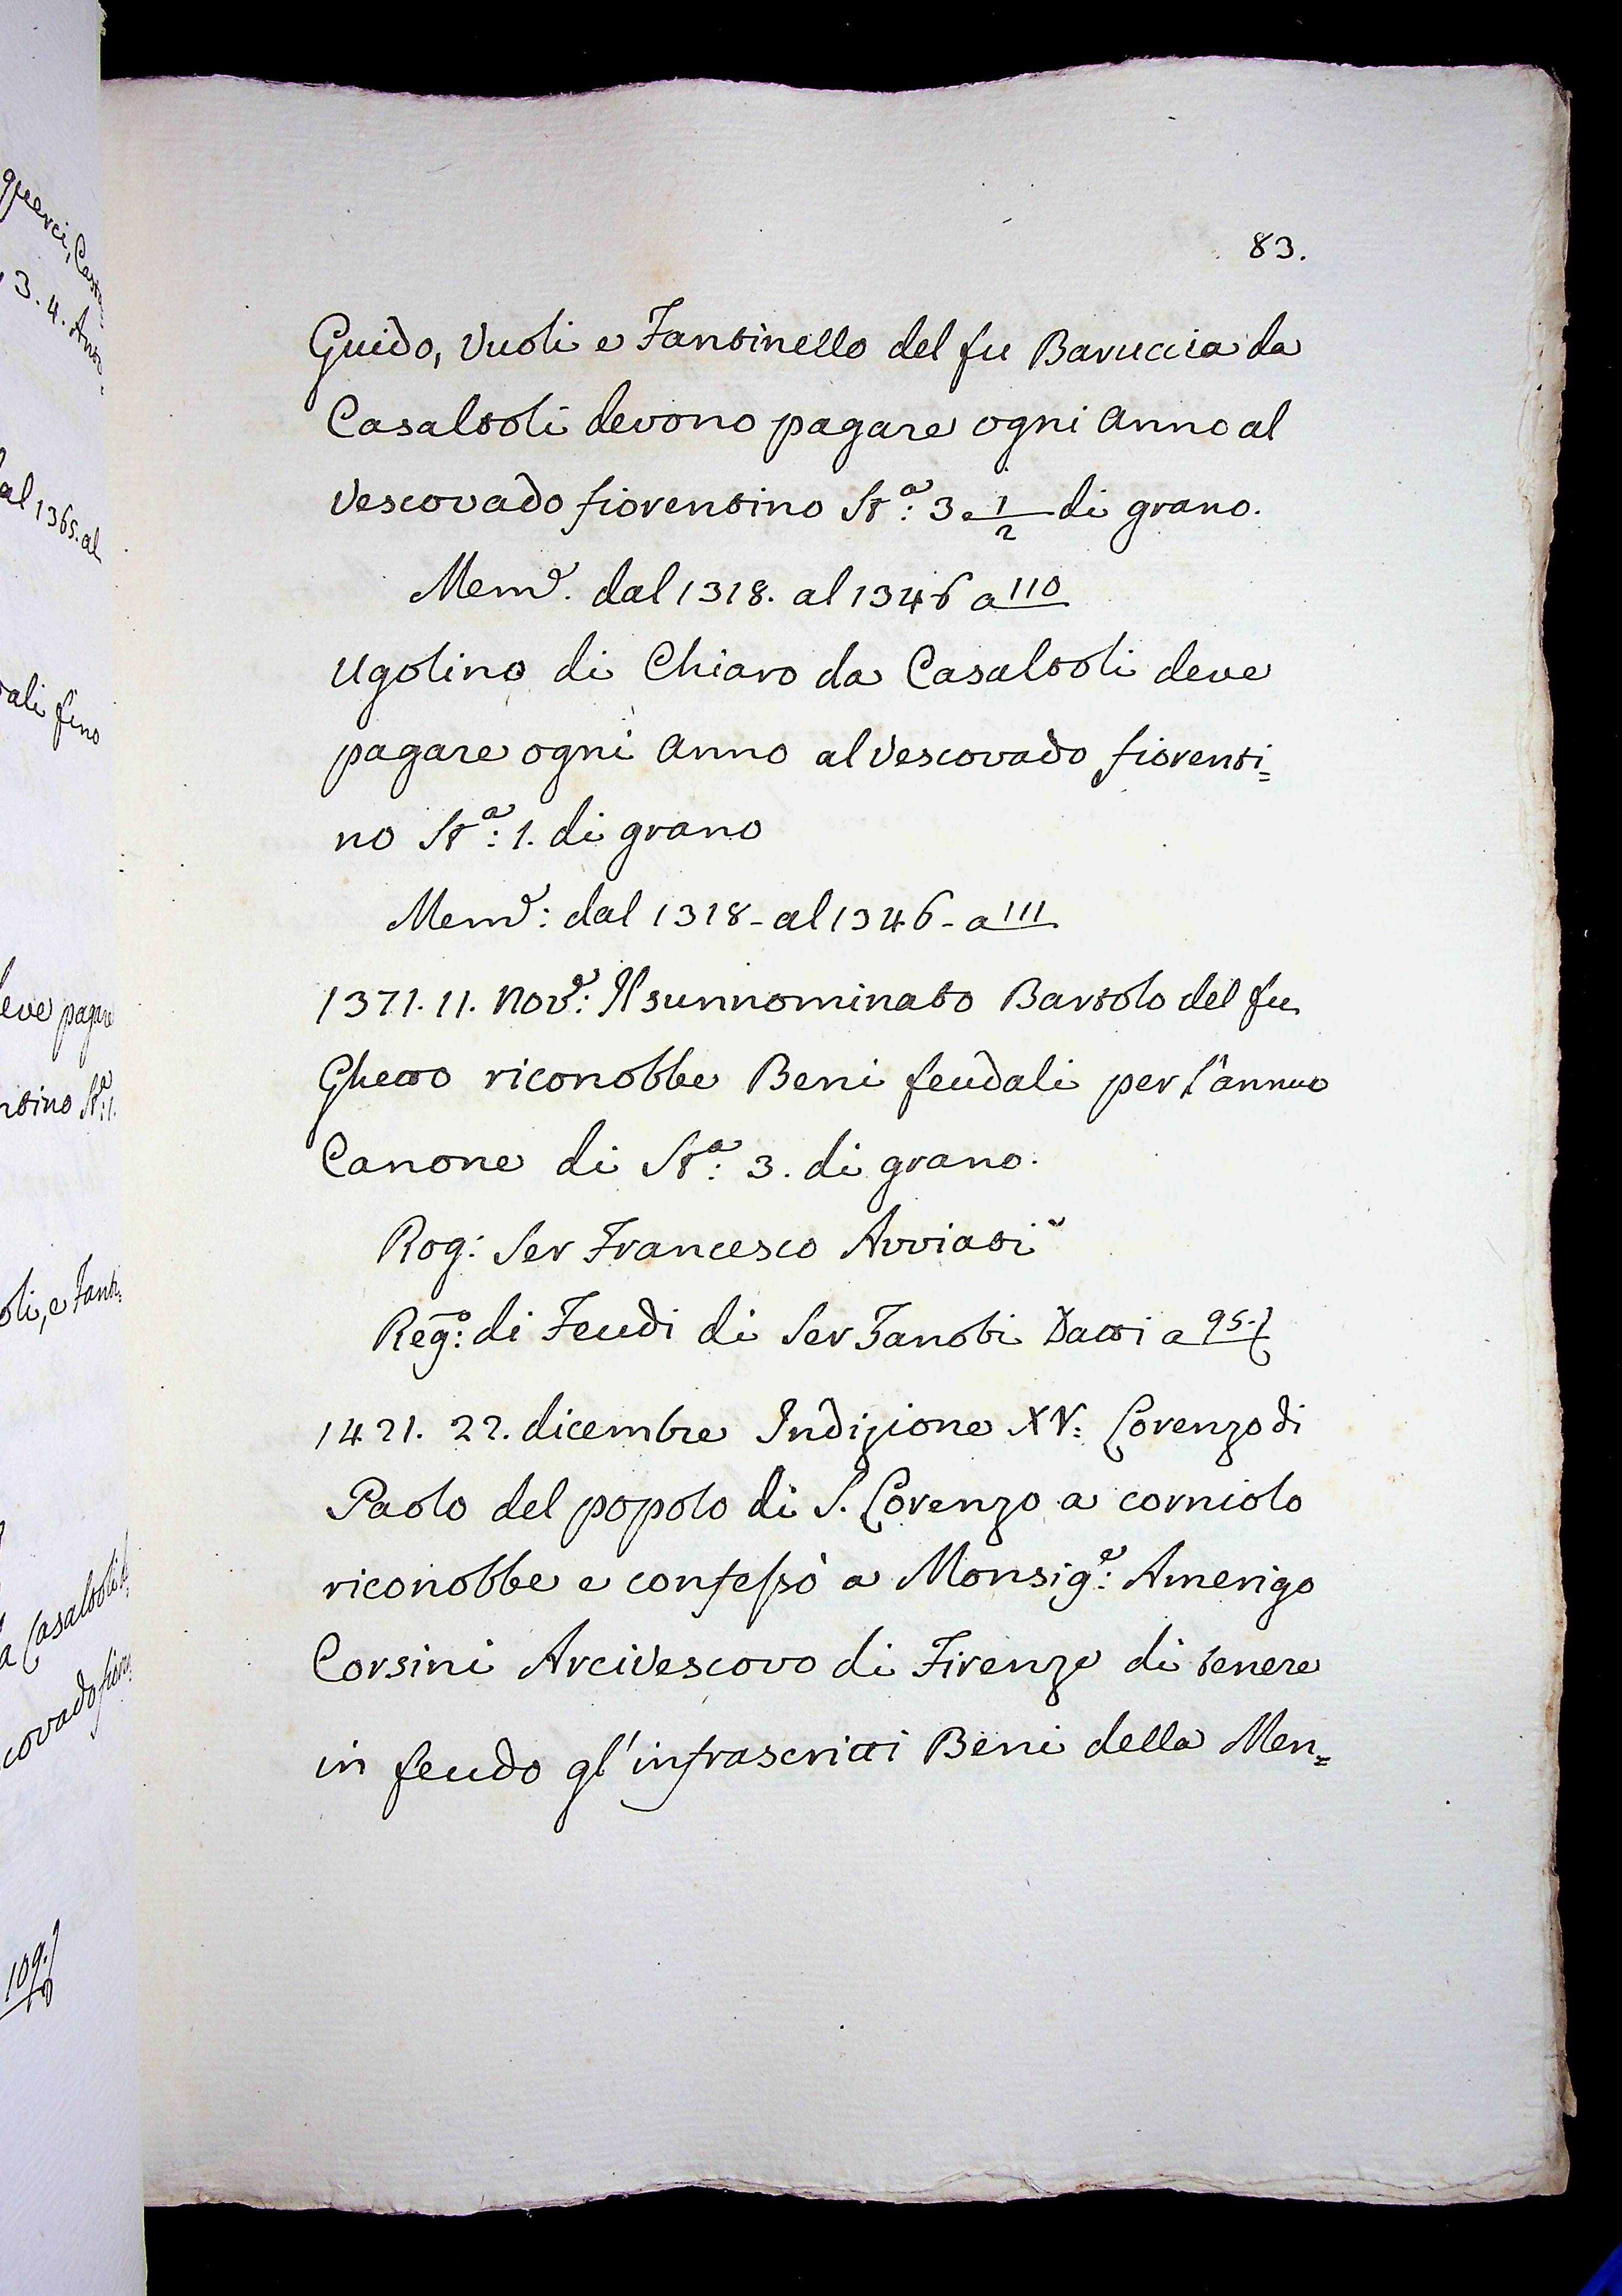 querci, Cas
3. 4. Ann
al 1365. al
ali fino
eve pagare
ntino St.ª 1.
oli, e Fanti:
a Casaltoli
covado fior
109.
83.
Guido, Vuoli e Fantinello del fu Baruccia da
Casaltoli devono pagare ogni Anno al
Vescovado fiorentino St.ª: 3 e 1/2 di grano.
Mem.e. dal 1318. al 1346 a 110
Ugolino di Chiaro da Casaltoli deve
pagare ogni Anno al Vescovado fiorenti=
no St.ª: 1. di grano
Mem.e: dal 1318 - al 1346 - a 111
1371. 11. Nov.e: Il sunnominato Bartolo del fu
Ghetto riconobbe Beni feudali per l'annuo
Canone di St.ª: 3. di grano.
Rog: Ser Francesco Avviati
Reg.o: di Feudi di Ser Zanobi Datti a 95.
1421. 22. dicembre Indizione XV: Lorenzo di
Paolo del popolo di S. Lorenzo a corniolo
riconobbe e confessò a Monsig.e: Amerigo
Corsini Arcivescovo di Firenze di tenere
in feudo gl'infrascritti Beni della Men=